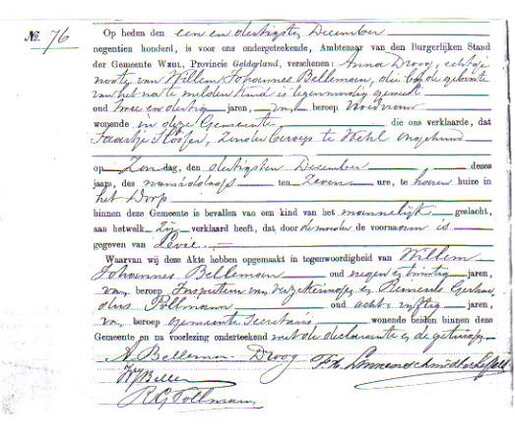 No. 76
Op heden den een en dertigsten December
negentien honderd, is voor ons ondergeteekende, Ambtenaar van den Burgerlijken Stand
der Gemeente WEHL, Provincie Gelderland, verschenen: Anna Droog, echtge
noote van Willem Johannes Bellemon, die bij de geboorte
van het na te melden kind is tegenwoordig geweest
oud twee en dertig jaren, van beroep vroedvrouw
wonende in deze Gemeente die ons verklaarde, dat
zonder beroep te Wehl
op Zondag, den dertigsten December dezes
jaars, des namiddags ten zeven ure, te haren huize in
het Dorp
binnen deze Gemeente is bevallen van een kind van het mannelijk geslacht,
aan hetwelk zij verklaard heeft, dat door de moeder de voornaam is
gegeven van
Waarvan wij deze Akte hebben opgemaakt in tegenwoordigheid van Willem
Johannes Bellemon oud negen en twintig jaren,
van beroep Inspecteur van en
Pollmann oud acht en vijftig jaren,
van beroep Gemeente Secretaris wonende beiden binnen deze
Gemeente en na voorlezing onderteekend met de declarante en de getuigen
A. Bellemon Droog
R G Pollmann